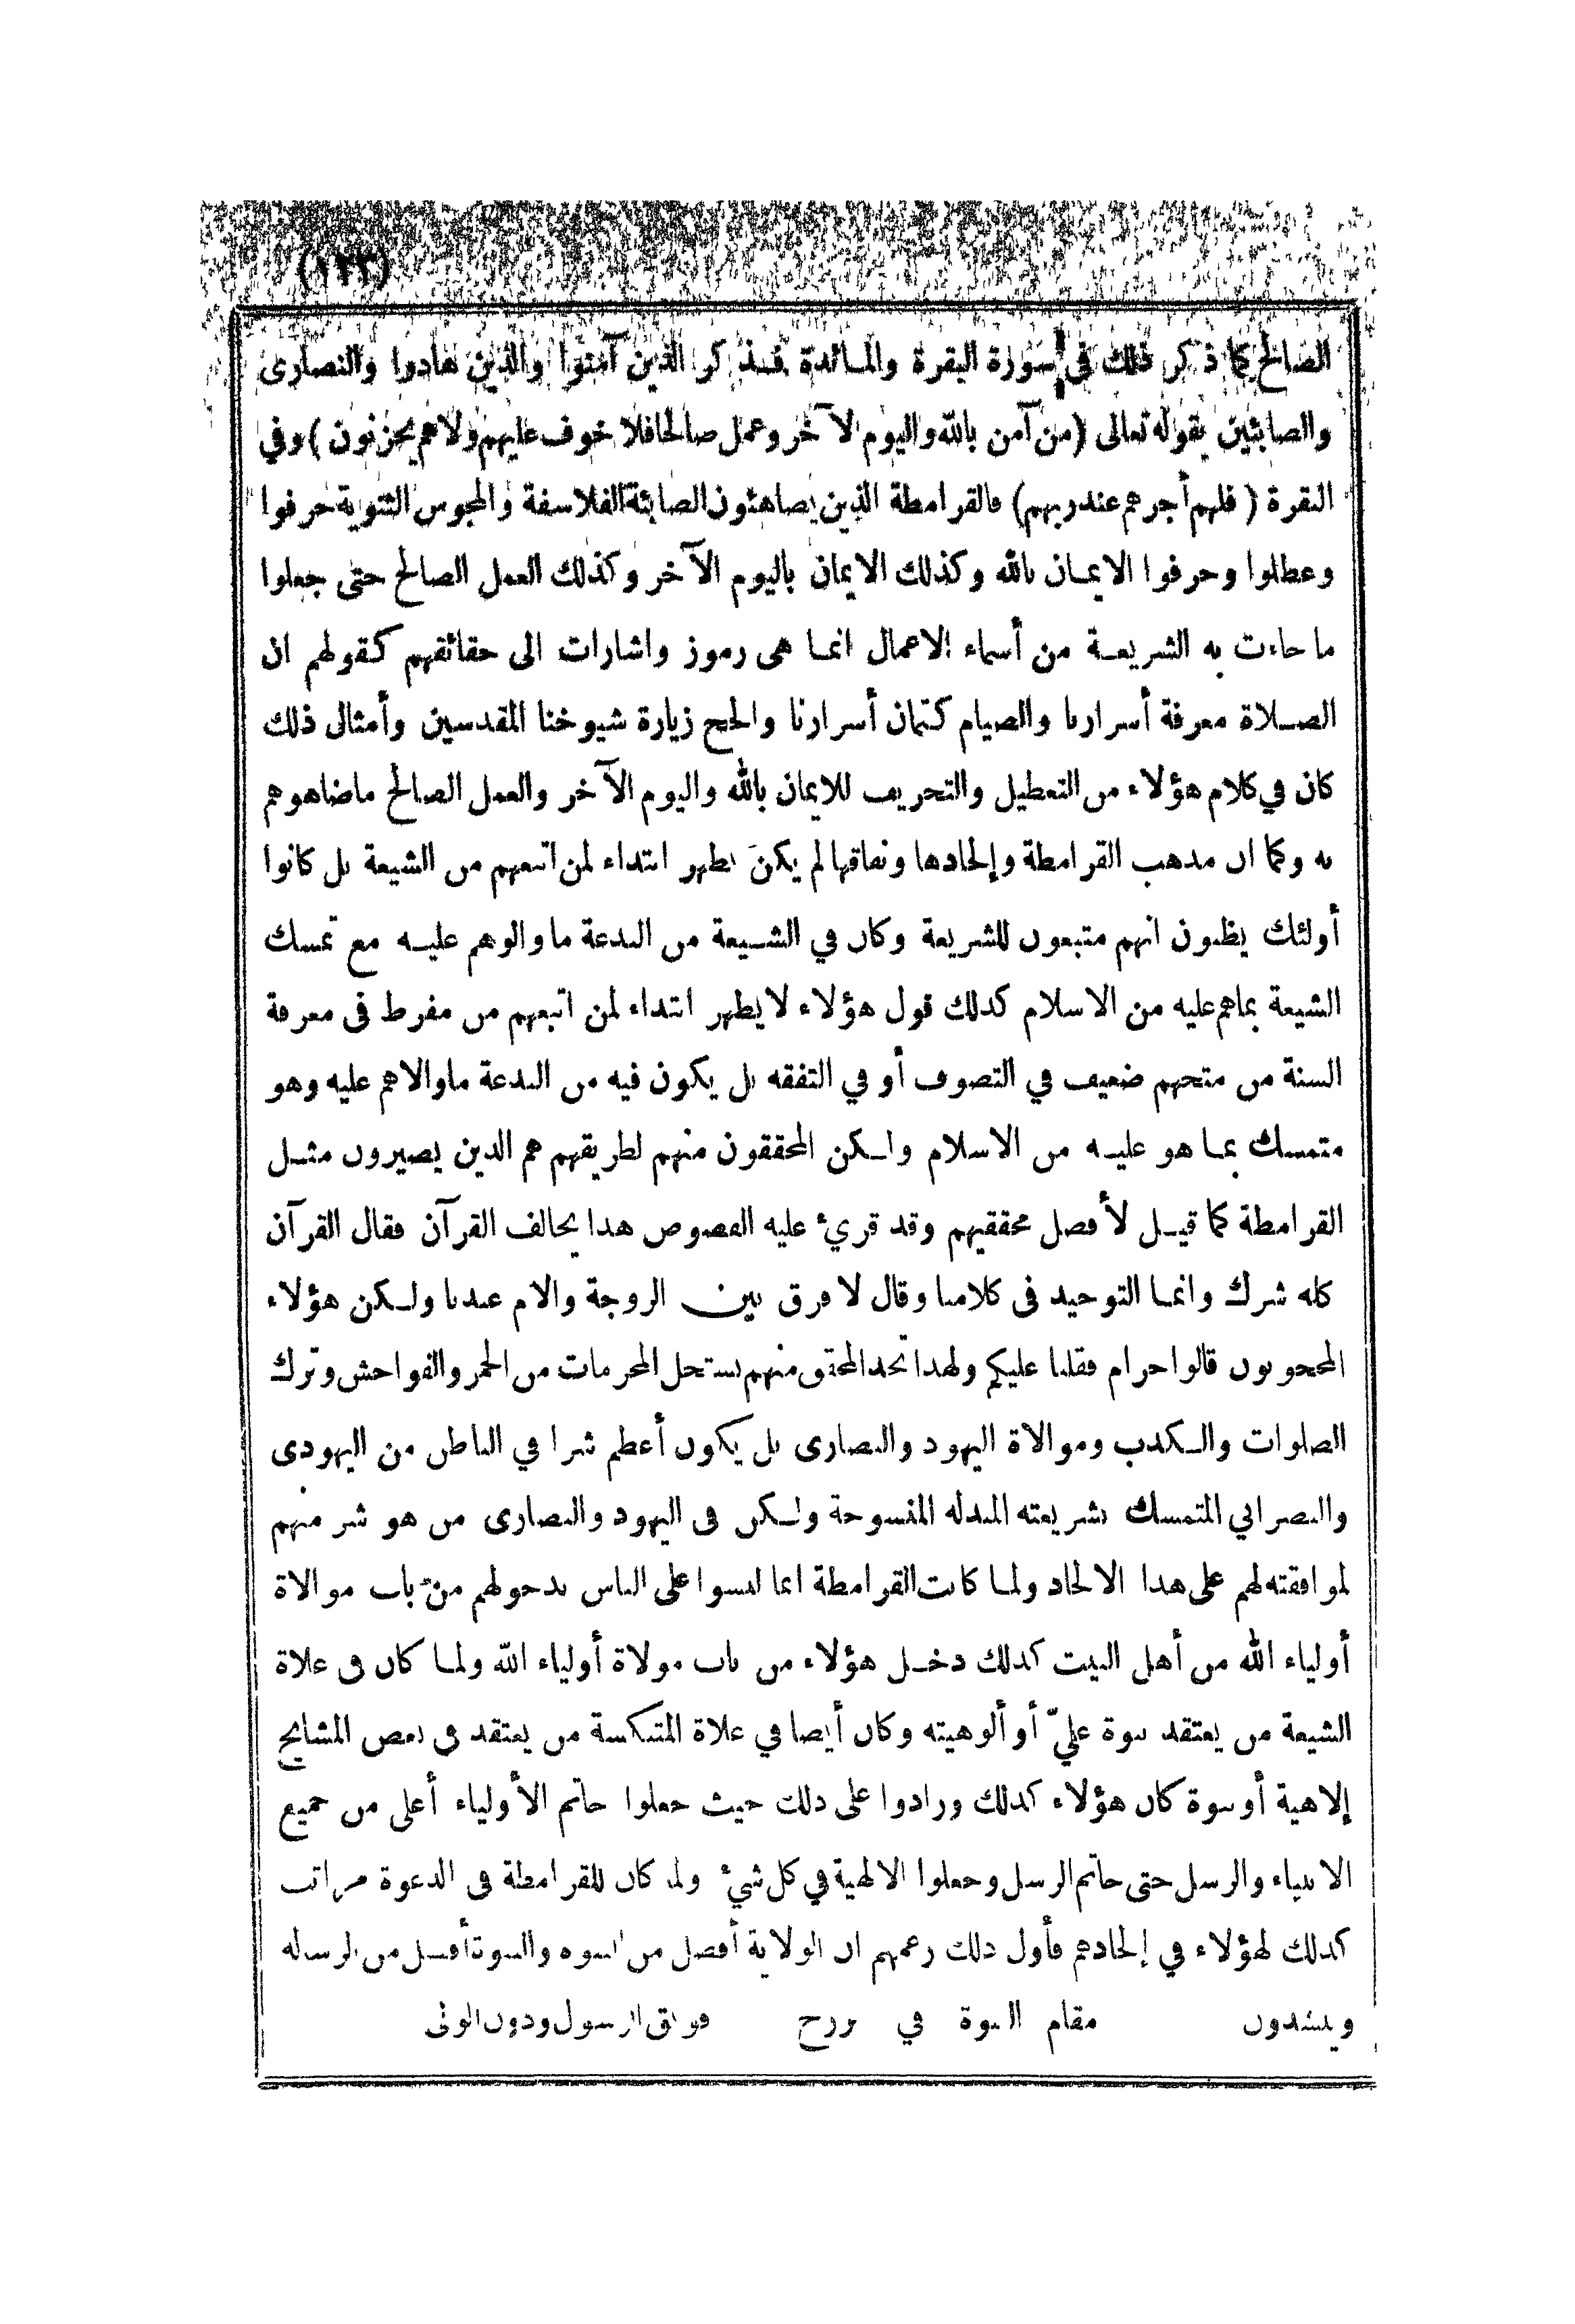 (١٢٣)
الصالح كما ذكر ذلك في سورة البقرة والمائدة فذكر الذين آمنوا والذين هادوا والنصارى
والصابئين بقوله تعالى (من آمن بالله واليوم الآخر وعمل صالحا فلا خوف عليهم ولا هم يحزنون) وفي
البقرة (فلهم أجرهم عند ربهم) فالقرامطة الذين يضاهئون الصابئة الفلاسفة والمجوس الثنوية حرفوا
وعطلوا وحرفوا الايمان بالله وكذلك الايمان باليوم الآخر وكذلك العمل الصالح حتى جعلوا
ما جاءت به الشريعة من أسماء الاعمال انما هى رموز واشارات الى حقائقهم كقولهم ان
الصلاة معرفة أسرارنا والصيام كتمان أسرارنا والحج زيارة شيوخنا المقدسين وأمثال ذلك
كان في كلام هؤلاء من التعطيل والتحريف للايمان بالله واليوم الآخر والعمل الصالح ما ضاهوهم
به وكما ان مذهب القرامطة وإلحادها ونفاقها لم يكن يظهر ابتداء لمن اتبعهم من الشيعة بل كانوا
أولئك يظنون انهم متبعون للشريعة وكان في الشيعة من البدعة ما والوهم عليه مع تمسك
الشيعة بما هم عليه من الاسلام كذلك قول هؤلاء لا يظهر ابتداء لمن اتبعهم من مفرط فى معرفة
السنة من متجهم ضعيف في التصوف أو في التفقه بل يكون فيه من البدعة ما والاهم عليه وهو
متمسك بما هو عليه من الاسلام ولكن المحققون منهم لطريقهم هم الذين يصيرون مثل
القرامطة كما قيل لأفضل محققيهم وقد قريء عليه الفصوص هذا يخالف القرآن فقال القرآن
كله شرك وانما التوحيد فى كلامنا وقال لا فرق بين الزوجة والام عندنا ولكن هؤلاء
المحجوبون قالوا حرام فقلنا عليكم ولهذا تجد المحقق منهم يستحل المحرمات من الخمر والفواحش وترك
الصلوات والكذب وموالاة اليهود والنصارى بل يكون أعظم شرا في الباطن من اليهودى
والنصراني المتمسك بشريعته المبدلة المنسوخة ولكن فى اليهود والنصارى من هو شر منهم
لموافقته لهم على هذا الالحاد ولما كانت القرامطة انما لبسوا على الناس بدخولهم من باب موالاة
أولياء الله من أهل البيت كذلك دخل هؤلاء من باب مولاة أولياء الله ولما كان فى غلاة
الشيعة من يعتقد نبوة عليّ أو ألوهيته وكان أيضا في غلاة المتنسكة من يعتقد فى بعض المشايخ
إلاهية أو نبوة كان هؤلاء كذلك وزادوا على ذلك حيث جعلوا خاتم الأولياء أعلى من جميع
الانبياء والرسل حتى خاتم الرسل وجعلوا الالهية في كل شيء ولما كان للقرامطة فى الدعوة مراتب
كذلك لهؤلاء في إلحادهم فأول ذلك زعمهم ان الولاية أفضل من النبوة والنبوة أفضل من الرسالة
وينشدون مقام النبوة في برزخ فويق الرسول ودون الولى